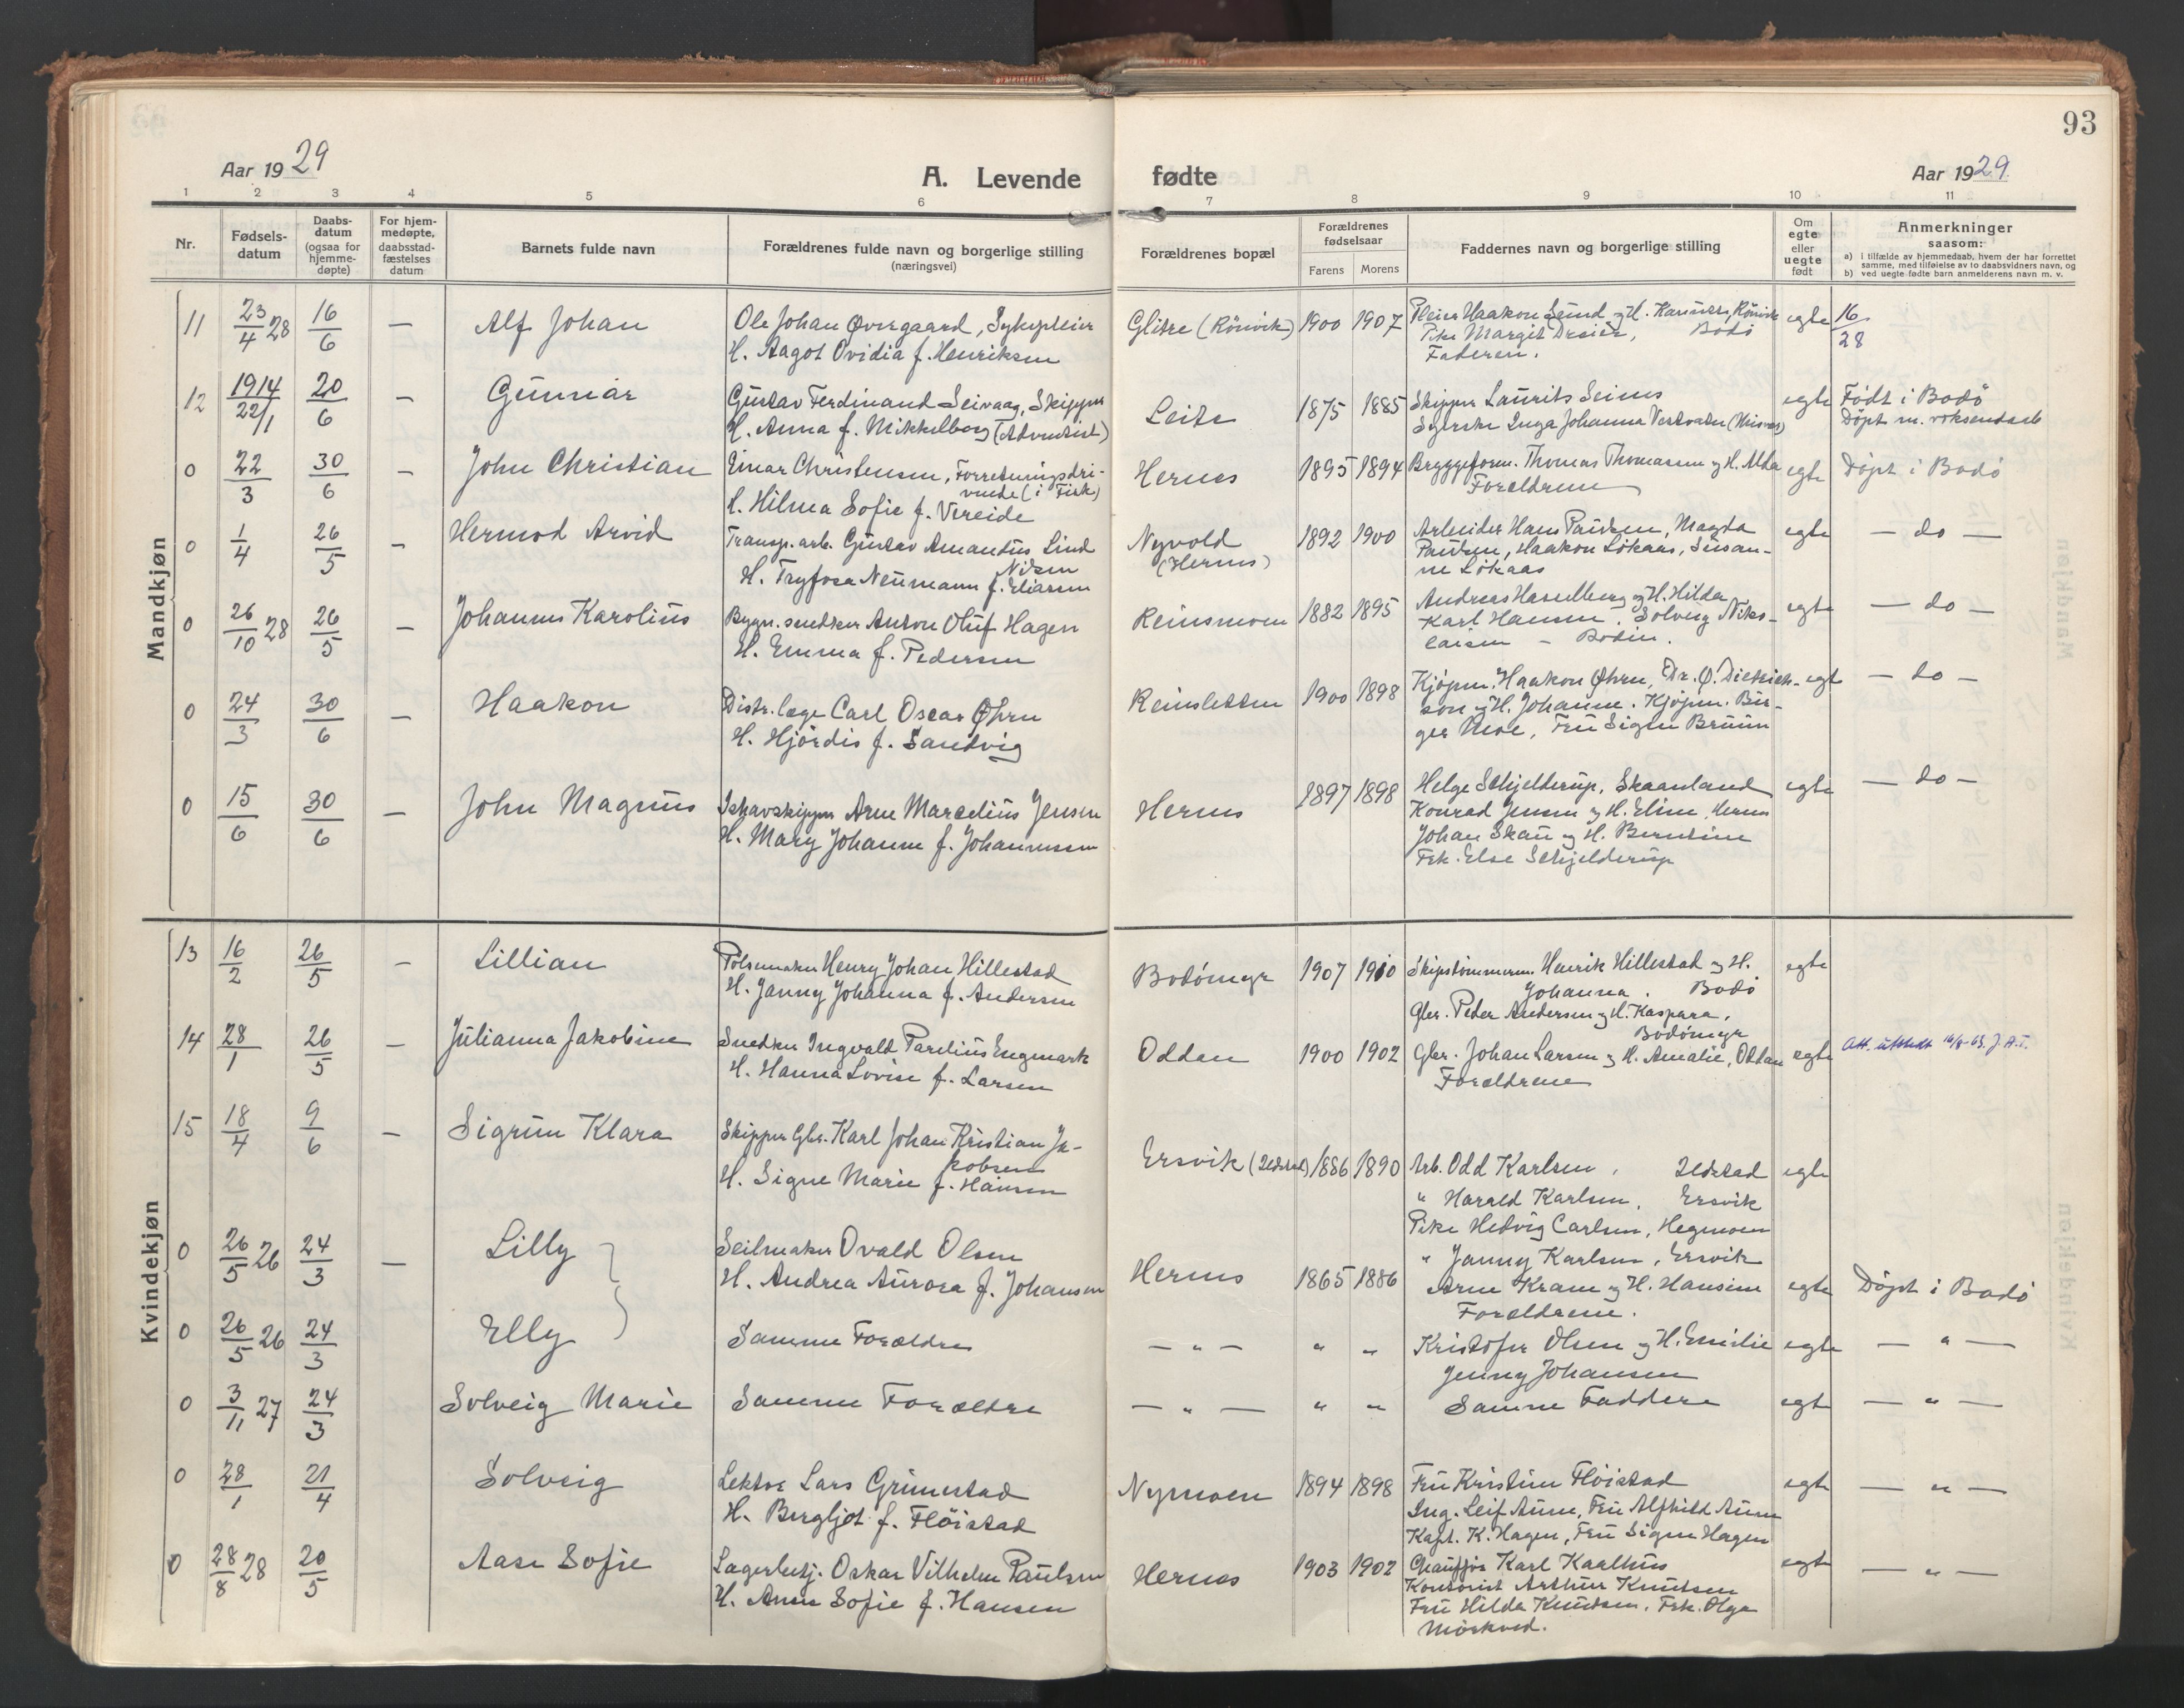 93
Aar 1929
A. Levende fødte
Aar 1929.
1 2 3 4 5 6 7 8 9 10 11
Nr.
Fødsels-
datum
Daabs-
datum
(ogsaa for
hjemme-
døpte)
For hjem-
medøpte,
daabsstad-
fæstelses
datum
Barnets fulde navn
Forældrenes fulde navn og borgerlige stilling
(næringsvei)
Forældrenes bopæl
Forældrenes
fødselsaar
Farens Morens
Faddernes navn og borgerlige stilling
Om
egte
eller
uegte
født
Anmerkninger
saasom:
a) i tilfælde av hjemmedaab, hvem der har forrettet
samme, med tilføielse av to daabsvidners navn, og
b) ved uegte fødte barn anmelderens navn m. v.
Mandkjøn
11 23/4 28 16/6 — Alf Johan
Ole Johan Øvergaard, Sykepleier
H. Aagot Ovidia f. Henriksen
Glitre (Rönvik) 1900 1907
Pleier Haakon Seines og H. Rönvik
Pike Margit Dreier, Bodö
Faderen.
egte 16/28
12 1914 22/1 20/6 — Gunnar
Gustav Ferdinand Seivaag, Skipper
H. Anna f. Mikkelborg (Adventist)
Leite 1875 1885
Skipper Laurits Seines
Syerske Inga Johanna Vestvatn
egte Födt i Bodö
Döpt m. voksendaab
0 22/3 30/6 — John Christian
Einar Christensen, Forretningsdri-
vende (i Fisk)
H. Hilma Sofie f. Vereide
Hernes 1895 1894
Bryggeform. Thomas Thomassen og H. Alba
Forældrene
egte Döpt i Bodö
0 1/4 26/5 — Hermod Arvid
Transp. arb. Gustav Amandus Lind
Nilsen
H. Tryfosa Neumann f. Eliassen
Nyvold
(Hernes)
1892 1900
Arbeider Hans Paulsen, Magda
Paulsen, Haakon Lökaas, Susan-
ne Lökaas
egte — do —
0 26/10 28 26/5 — Johannes Karolius
Bygn. snedker Anton Oluf Hagen
H. Emma f. Pedersen
Reinsmoen 1882 1895
Andreas Hasselberg og H. Hilda
Karl Hansen. Solveig Niko-
laisen — Bodin.
egte — do —
0 24/3 30/6 — Haakon
Distr. læge Carl Oscar Øhrn
H. Hjördis f. Sandvig
Reinsletten 1900 1898
Kjöpm. Haakon Øhrn, Dr. Ø. Dietrich-
son og H. Johanne. Kjöpm. Bir-
ger Moe, Fru Signe Bruun
egte — do —
0 15/6 30/6 — John Magnus
Ishavskipper Arne Marcelius Jensen
H. Mary Johanne f. Johannessen
Hernes 1897 1898
Helge Schjelderup, Skaanland
Konrad Jensen og H. Eline, Hernes
Johan Skau og H. Berntine
Frk. Else Schjelderup
egte — do —
Kvindekjøn
13 16/2 26/5 — Lillian
Pölsemaker Henry Johan Hillestad
H. Janny Johanna f. Andersen
Bodömyr 1907 1910
Skipstömmerm. Henrik Hillestad og H.
Johanna. Bodö
Gbr. Peder Andersen og H. Kaspara,
Bodömyr
egte
14 28/1 26/5 — Julianna Jakobine
Snedker Ingvald Parelius Engmark
H. Hanna Lovise f. Larsen
Oddan 1900 1902
Gbr. Johan Larsen og H. Amalie, Oddan
Forældrene
egte Att. utstedt 16/8-63. J.A.T.
15 18/4 9/6 — Sigrun Klara
Skipper Gbr. Karl Johan Kristian Ja-
kobsen
H. Signe Marie f. Hansen
Ersvik 1886 1890
Arb. Odd Karlsen,
" Harald Karlsen, Ersvik
Pike Hedvig Carlsen, Hegmoen
" Janny Karlsen, Ersvik
egte
0 26/5 26 24/3 — Lilly
Seilmaker Ovald Olsen
H. Andrea Aurora f. Johansen
Hernes 1865 1886
Arne Kram og H. Hansine
Forældrene.
egte Döpt i Bodö
0 26/5 26 24/3 Elly
Samme Forældre
— " — " "
Kristofer Olsen og H. Emilie
Jenny Johansen
egte — " —
0 3/11 27 24/3 Solveig Marie
Samme Forældre
— " — " "
Samme Faddere
egte — " —
0 28/1 21/4 Solveig
Lektor Lars Grimestad
H. Bergljot f. Flöistad
Nymoen 1894 1898
Fru Kristine Flöistad
Ing. Leif Aune, Fru Alfhild Aune
Kapt. K. Hagen, Fru Signe Hagen
egte — " —
0 28/8 28 20/5 Aase Sofie
Lagerbetj. Oskar Vilhelm Paulsen
H. Anna Sofie f. Hansen
Hernes 1903 1902
Chaufför Karl Kaalhus
Kontorist Arthur Knutsen
Fru Hilda Knutsen. Frk. Olga
Mörkved.
egte — " —